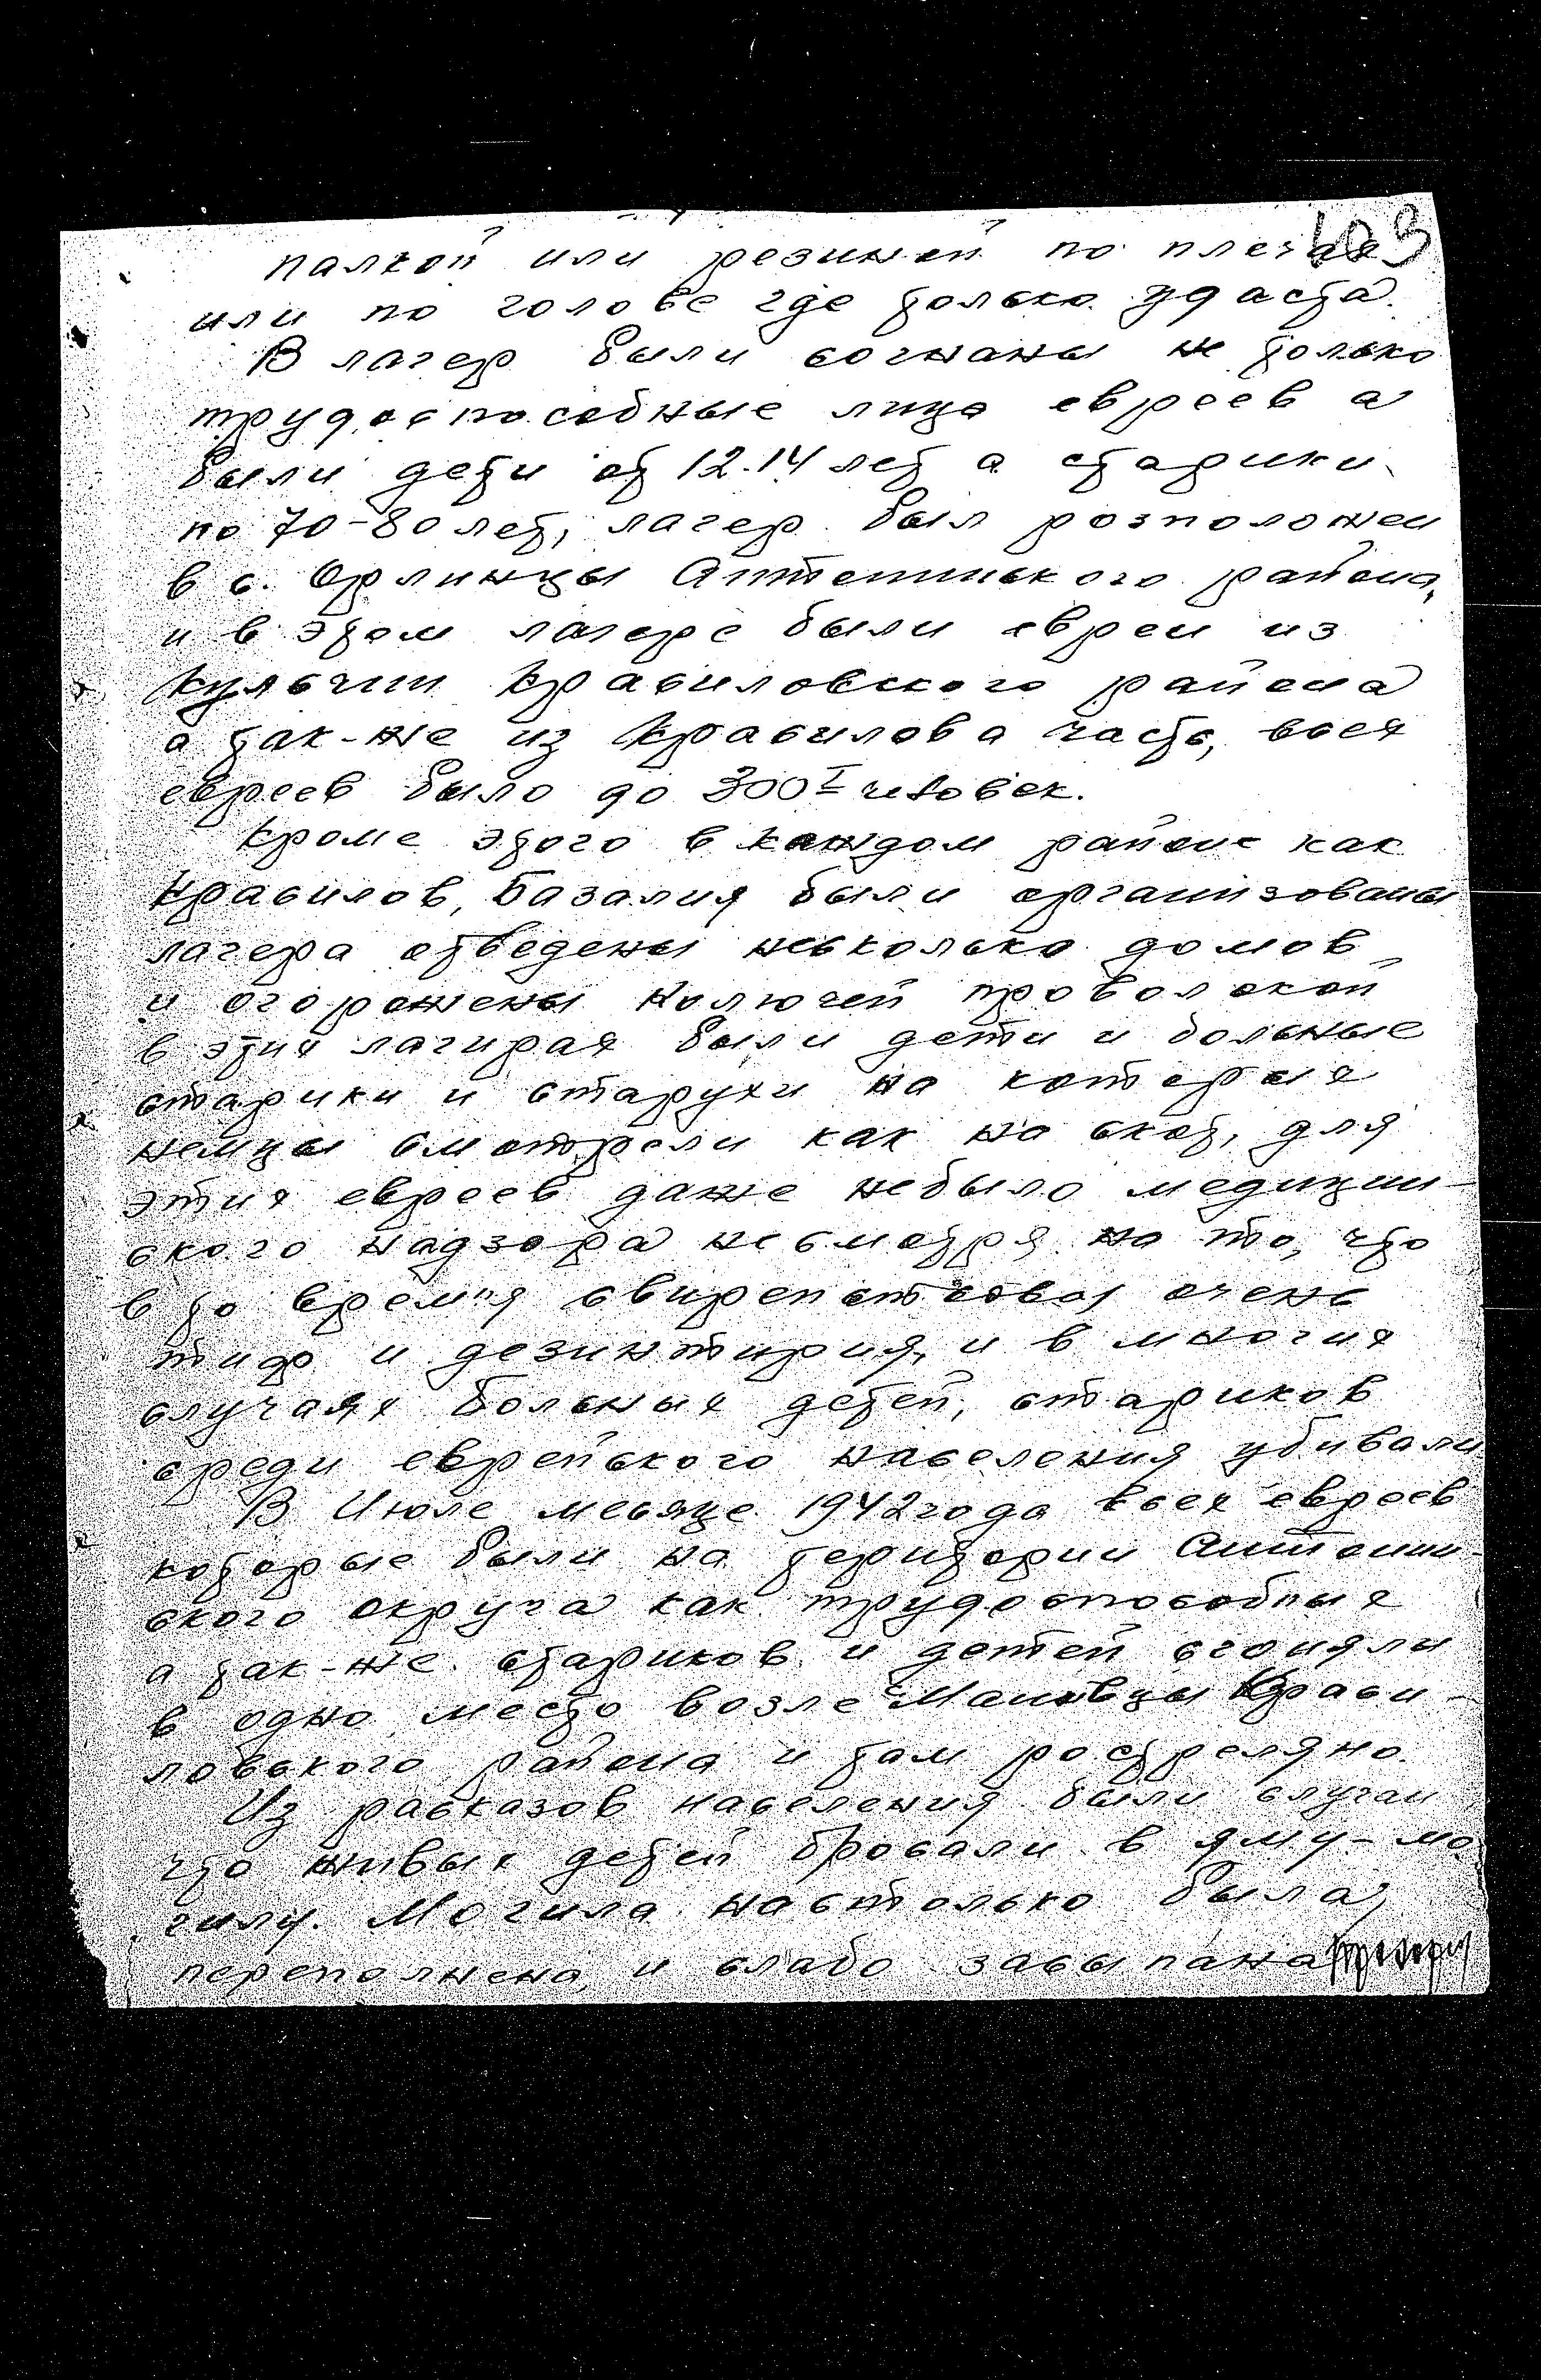 103
палкой или резиной по плечах
или по голове где только удаста.
В лагер были согнаны не только
трудоспособные лица евреев а
были дети от 12.14 лет а старики
по 70-80 лет, лагер был розположен
в с. Орлинцы Антонинского района,
и в этом лагере были евреи из
Кульчин Красиловского района
а так-же из Красилова часть, всех
евреев было до 300 человек.
Кроме этого в каждом районе как
Красилов, Базалия были организованы
лагера отведены несколько домов
и огорожены колючей проволокой
в этих лагирах были дети и больные
старики и старухи на которых
немцы смотрели как на скот, для
этих евреев даже небыло медицин-
ского надзора несмотря на то, что
в то время свирепствовал очень
тиф и дезинтирия, и в многих
случаях больных детей, стариков
среди еврейского населения убивали
В Июле месяце 1942 года всех евреев
которые были на територии Антонин-
ского округа как трудоспособных
а так-же стариков и детей согняли
в одно место возле Мановцы Краси-
ловского района и там ростреляно.
Из расказов населения были случаи
что живых детей бросали в яму-мо
гилу. Могила настолько была
переполнена, и слабо засыпана